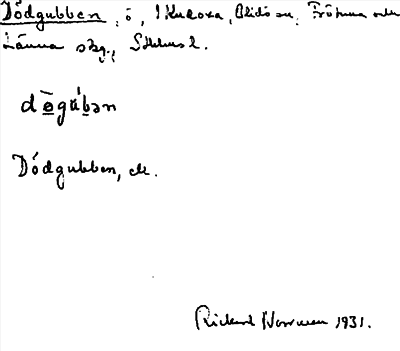 Dödgubben, ö, i Kuloxa, Blidö sn, Frötuna och
Länna skg., Sthlms l.
dø̀gúbən
Dödgubben, ö.
Rickard Norrman 1931.